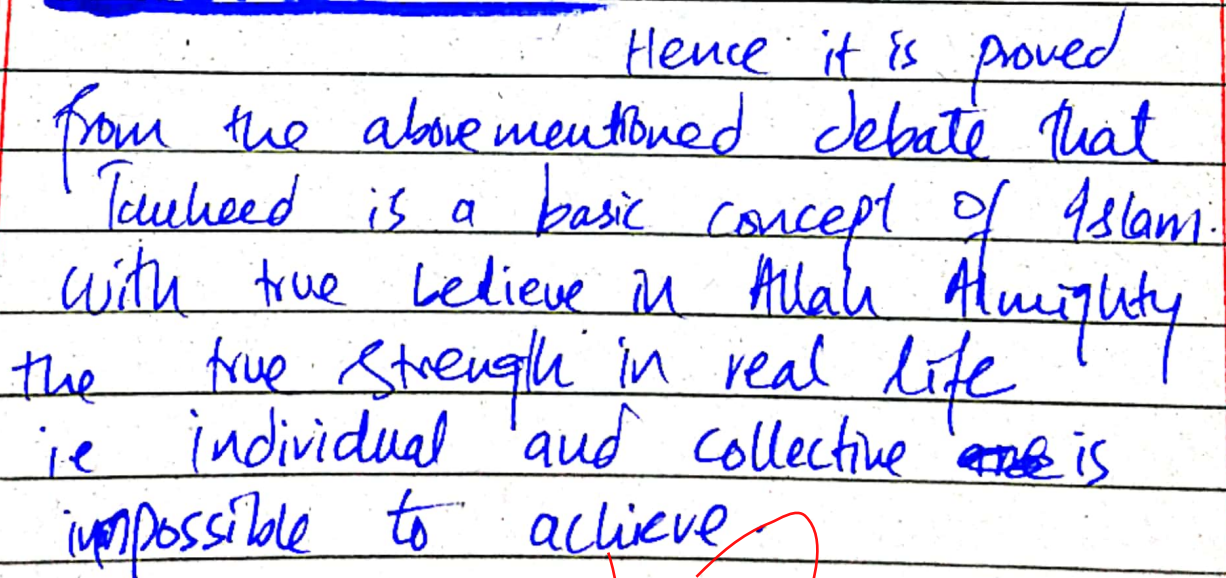 Hence it is proved
from the abovementioned debate that
Tauheed is a basic concept of Islam.
with true believe in Allah Almighty
the true strength in real life
ie individual and collective is
impossible to achieve.